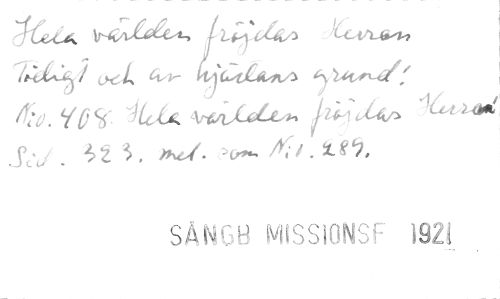 Hela världen fröjdas Herran
Tidigt och av hjärtans grund!
N:o. 408. Hela världen fröjdas Herran!
Sid. 323. mel. som N:o. 289.
SÅNGB MISSIONSF 1921